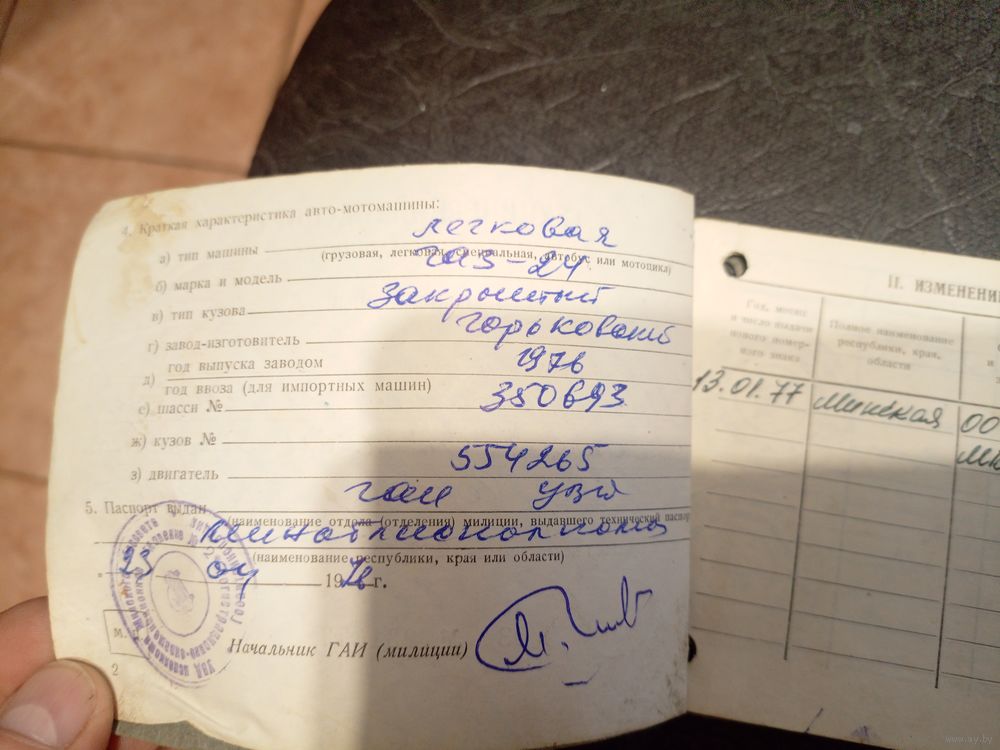 4. Краткая характеристика авто-мотомашины:
а) тип машины легковая
(грузовая, легковая, специальная, автобус или мотоцикл)
б) марка и модель ГАЗ-24
в) тип кузова закрытый
г) завод-изготовитель горьковский
д) год выпуска заводом 1976
год ввоза (для импортных машин)
е) шасси № 350693
ж) кузов №
з) двигатель 554265
5. Паспорт выдан ГАИ УВД
(наименование отдела (отделения) милиции, выдавшего технический паспор
Миноблисполкома
(наименование республики, края или области)
23 04 1976 г.
М.
Начальник ГАИ (милиции)
2
II. ИЗМЕНЕНИ
Год, месяц
и число выдачи
нового номер-
ного знака
Полное наименование
республики, края,
области
13.01.77 Минская 00
www.ay.by